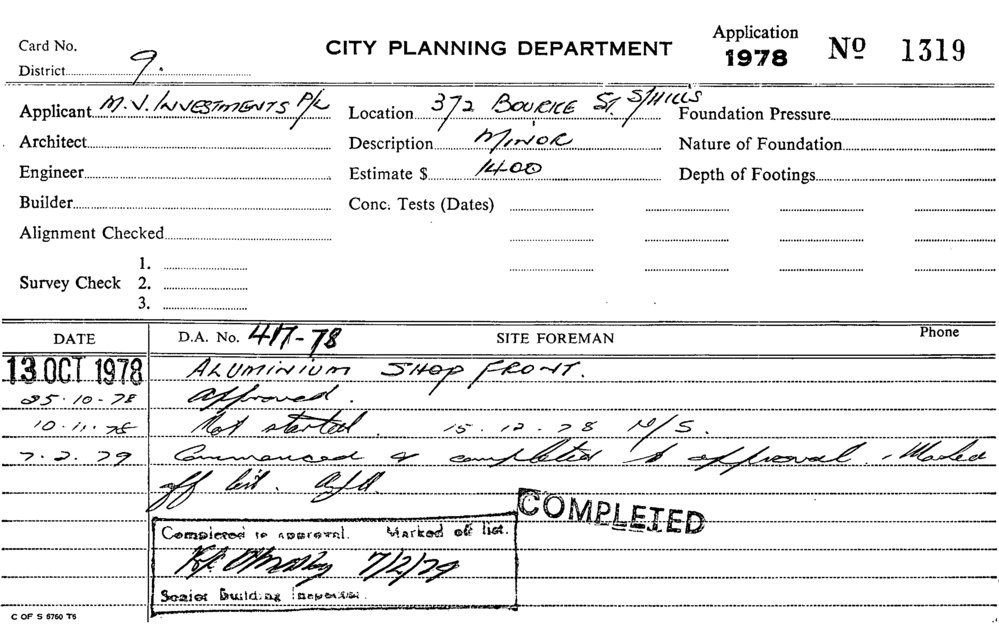 Card No.
District 9.
CITY PLANNING DEPARTMENT
Application
1978 No 1319
Applicant M.V. INVESTMENTS P/L Location 372 BOURKE ST. S/HILLS Foundation Pressure
Architect Description MINOR Nature of Foundation
Engineer Estimate $ 1400 Depth of Footings
Builder Conc. Tests (Dates)
Alignment Checked
1.
Survey Check 2.
3.
DATE D.A. No. 417-78 SITE FOREMAN Phone
13 OCT 1978 ALUMINIUM SHOP FRONT.
25.10.78 Approved.
10.11.78 Not started. 15.12.78 N/S.
7.2.79 Commenced & completed to approval. Marked
off list.
COMPLETED
Completed to approval. Marked off list.
7/2/79
Senior Building Inspector.
C OF S 5760 T5